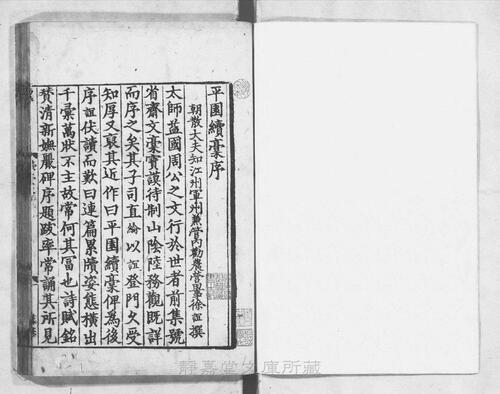 平園續槀序
朝散大夫知江州軍州兼管內勸農營田事徐誼撰
太師益國周公之文行於世者前集號
省齋文槀寶謨待制山陰陸務觀既詳
而序之矣其子司直綸以誼登門久受
知厚又裒其近作曰平園續槀俾為後
序誼伏讀而歎曰連篇累牘姿態橫出
千彙萬狀不主故常何其富也詩賦銘
贊清新嫵麗碑序題跋率常誦其所見
靜嘉堂文庫所藏